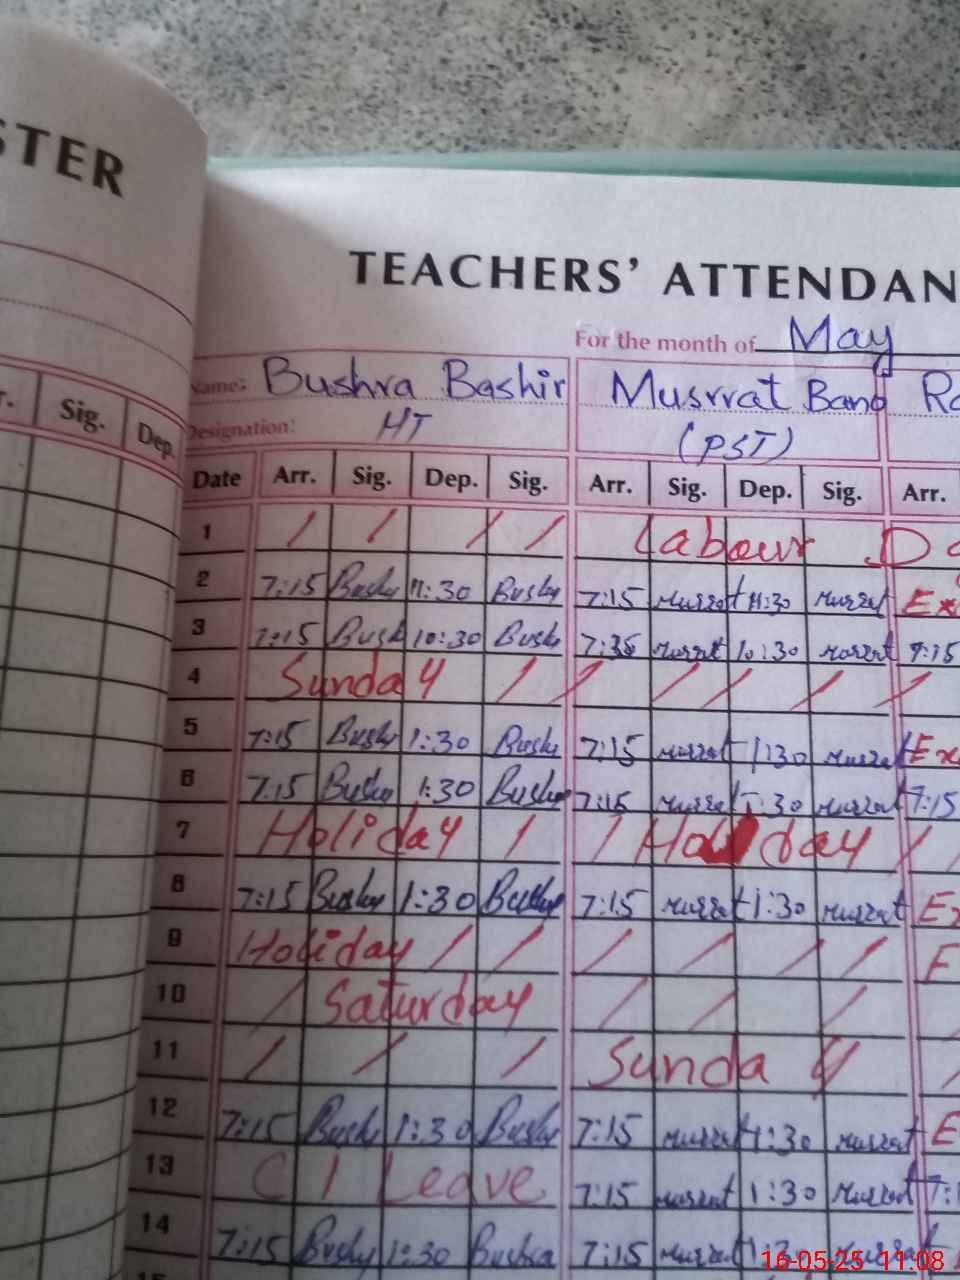 STER
TEACHERS' ATTENDAN
For the month of May
Name: Bushra Bashir Musrrat Bano
Designation: HT (PST)
Sig. Dep.
Date Arr. Sig. Dep. Sig. Arr. Sig. Dep. Sig. Arr.
1 / / / / Labour D
2 7:15 Bushr 11:30 Bushr 7:15 Murrat 11:30 Murrat Ex
3 7:15 Bush 10:30 Bushr 7:35 Murrat 10:30 Murrat 7:15
4 Sunday / / / / / /
5 7:15 Bushr 1:30 Bushr 7:15 Murrat 1:30 Murrat Ex
6 7:15 Bushr 1:30 Bushr 7:15 Murrat 1:30 Murrat 7:15
7 Holiday / / Holiday / /
8 7:15 Bushr 1:30 Bushr 7:15 Murrat 1:30 Murrat Ex
9 Holiday / / / / / /
10 / Saturday / / /
11 / / / Sunday /
12 7:15 Bushr 1:30 Bushr 7:15 Murrat 1:30 Murrat E
13 C l Leave 7:15 Murrat 1:30 Murrat 7:
14 7:15 Bushr 1:30 Bushra 7:15 Murrat 1:30 Murrat
15
16-05-25 11:08